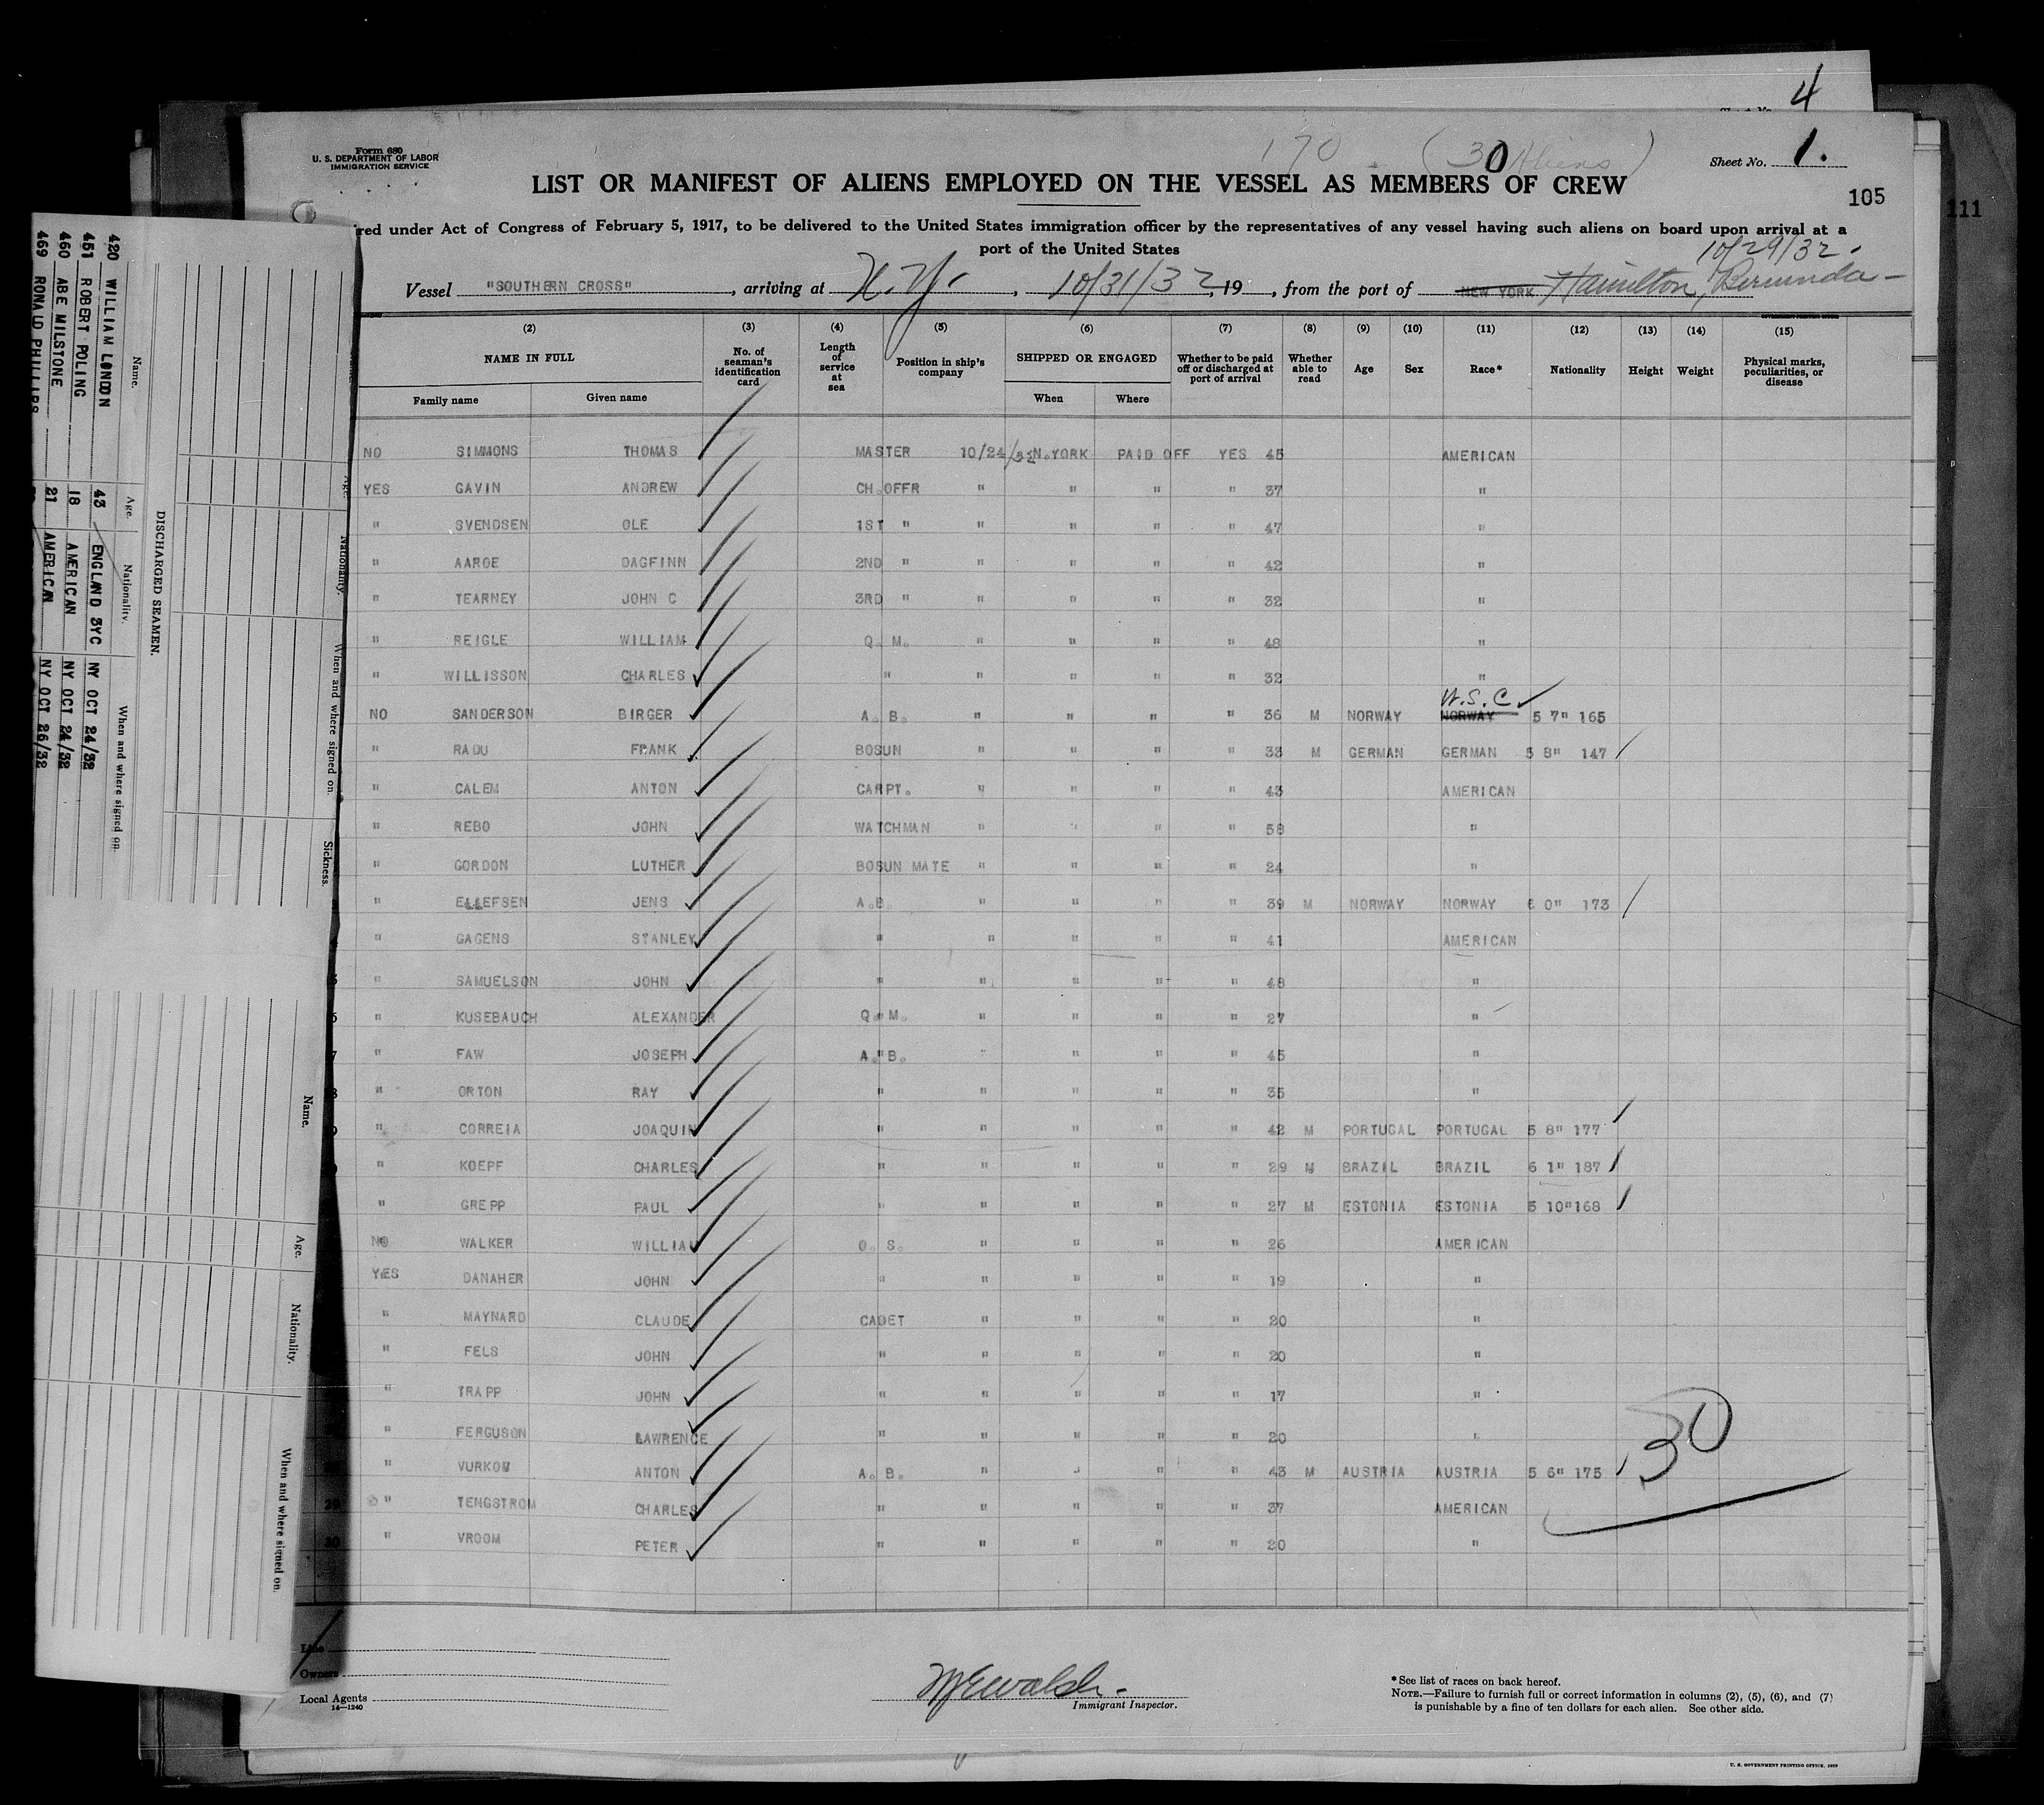 4
Form 680
U. S. DEPARTMENT OF LABOR
IMMIGRATION SERVICE
170 - (30 Aliens)
Sheet No. 1.
LIST OR MANIFEST OF ALIENS EMPLOYED ON THE VESSEL AS MEMBERS OF CREW
105
111
red under Act of Congress of February 5, 1917, to be delivered to the United States immigration officer by the representatives of any vessel having such aliens on board upon arrival at a
port of the United States
10/29/32-
Vessel "SOUTHERN CROSS", arriving at N.Y., 10/31/32, 19 , from the port of NEW YORK Hamilton, Bermuda-
(2) (3) (4) (5) (6) (7) (8) (9) (10) (11) (12) (13) (14) (15)
NAME IN FULL Family name Given name
No. of seaman's identification card
Length of service at sea
Position in ship's company
SHIPPED OR ENGAGED When Where
Whether to be paid off or discharged at port of arrival
Whether able to read
Age Sex Race* Nationality Height Weight
Physical marks, peculiarities, or disease
NO SIMMONS THOMAS MASTER 10/24/32 N.YORK PAID OFF YES 45 AMERICAN
YES GAVIN ANDREW CH.OFFR " " " " 37 "
" SVENDSEN OLE 1ST " " " " " 47 "
" AAROE DAGFINN 2ND " " " " " 42 "
" TEARNEY JOHN C 3RD " " " " " 32 "
" REIGLE WILLIAM Q. M. " " " " 48 "
" WILLISSON CHARLES " " " " " 32 "
U.S.C ✓
NO SANDERSON BIRGER A. B. " " " " 36 M NORWAY NORWAY 5 7" 165
" RADU FRANK BOSUN " " " " 33 M GERMAN GERMAN 5 8" 147
" CALEM ANTON CARPT. " " " " 43 AMERICAN
" REBO JOHN WATCHMAN " " " " 58 "
" GORDON LUTHER BOSUN MATE " " " " 24 "
" ELLEFSEN JENS A.B. " " " " 39 M NORWAY NORWAY 6 0" 173
" GAGENS STANLEY " " " " " 41 AMERICAN
" SAMUELSON JOHN " " " " " 48 "
" KUSEBAUCH ALEXANDER Q. M. " " " " 27 "
" FAW JOSEPH A." B. " " " " 45 "
" ORTON RAY " " " " " 35 "
" CORREIA JOAQUIN " " " " " 42 M PORTUGAL PORTUGAL 5 8" 177
" KOEPF CHARLES " " " " " 29 M BRAZIL BRAZIL 6 1" 187
" GREPP PAUL " " " " " 27 M ESTONIA ESTONIA 5 10"168
NO WALKER WILLIAM O. S. " " " " 26 AMERICAN
YES DANAHER JOHN " " " " " 19 "
" MAYNARD CLAUDE CADET " " " " 20 "
" FELS JOHN " " " " " 20 "
" TRAPP JOHN " " " " " 17 "
" FERGUSON LAWRENCE " " " " " 20 "
" VURKOW ANTON A. B. " " " " 43 M AUSTRIA AUSTRIA 5 6" 175
30
29 " TENGSTROM CHARLES " " " " " 37 AMERICAN
30 " VROOM PETER " " " " " 20 "
Line
Owners
Local Agents
14—1240
Immigrant Inspector.
*See list of races on back hereof.
NOTE.—Failure to furnish full or correct information in columns (2), (5), (6), and (7)
is punishable by a fine of ten dollars for each alien. See other side.
U. S. GOVERNMENT PRINTING OFFICE
DISCHARGED SEAMEN.
Name. Age. Nationality. When and where signed on.
420 WILLIAM LONDON 43 ENGLAND 3YC NY OCT 24/32
451 ROBERT POLING 18 AMERICAN NY OCT 24/32
460 ABE MILSTONE 21 AMERICAN NY OCT 26/32
469 RONALD PHILLIPS
Age. Nationality. When and where signed on. Sickness.
Name. Age. Nationality. When and where signed on.